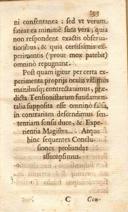 ni consentanea; sed ut verum
fatear ea minimè satis vera; quia
non respondent exactis observa-
tionibus, & quia certissimis ex-
perimentis (prout mox patebit)
omnino repugnant.
Post quam igitur per certa ex-
perimenta propriis oculis vidimus
manibusq; contrectavimus, præ-
dicta Tensionistarum fundamen-
falsa supposita esse omnino falsa,
in contrarium descendamus sen-
tentiam sensu duce, & Expe-
rientia Magistra. Atque
hinc sequentes Conclu-
siones probandas
assumpsimus.
C Con-